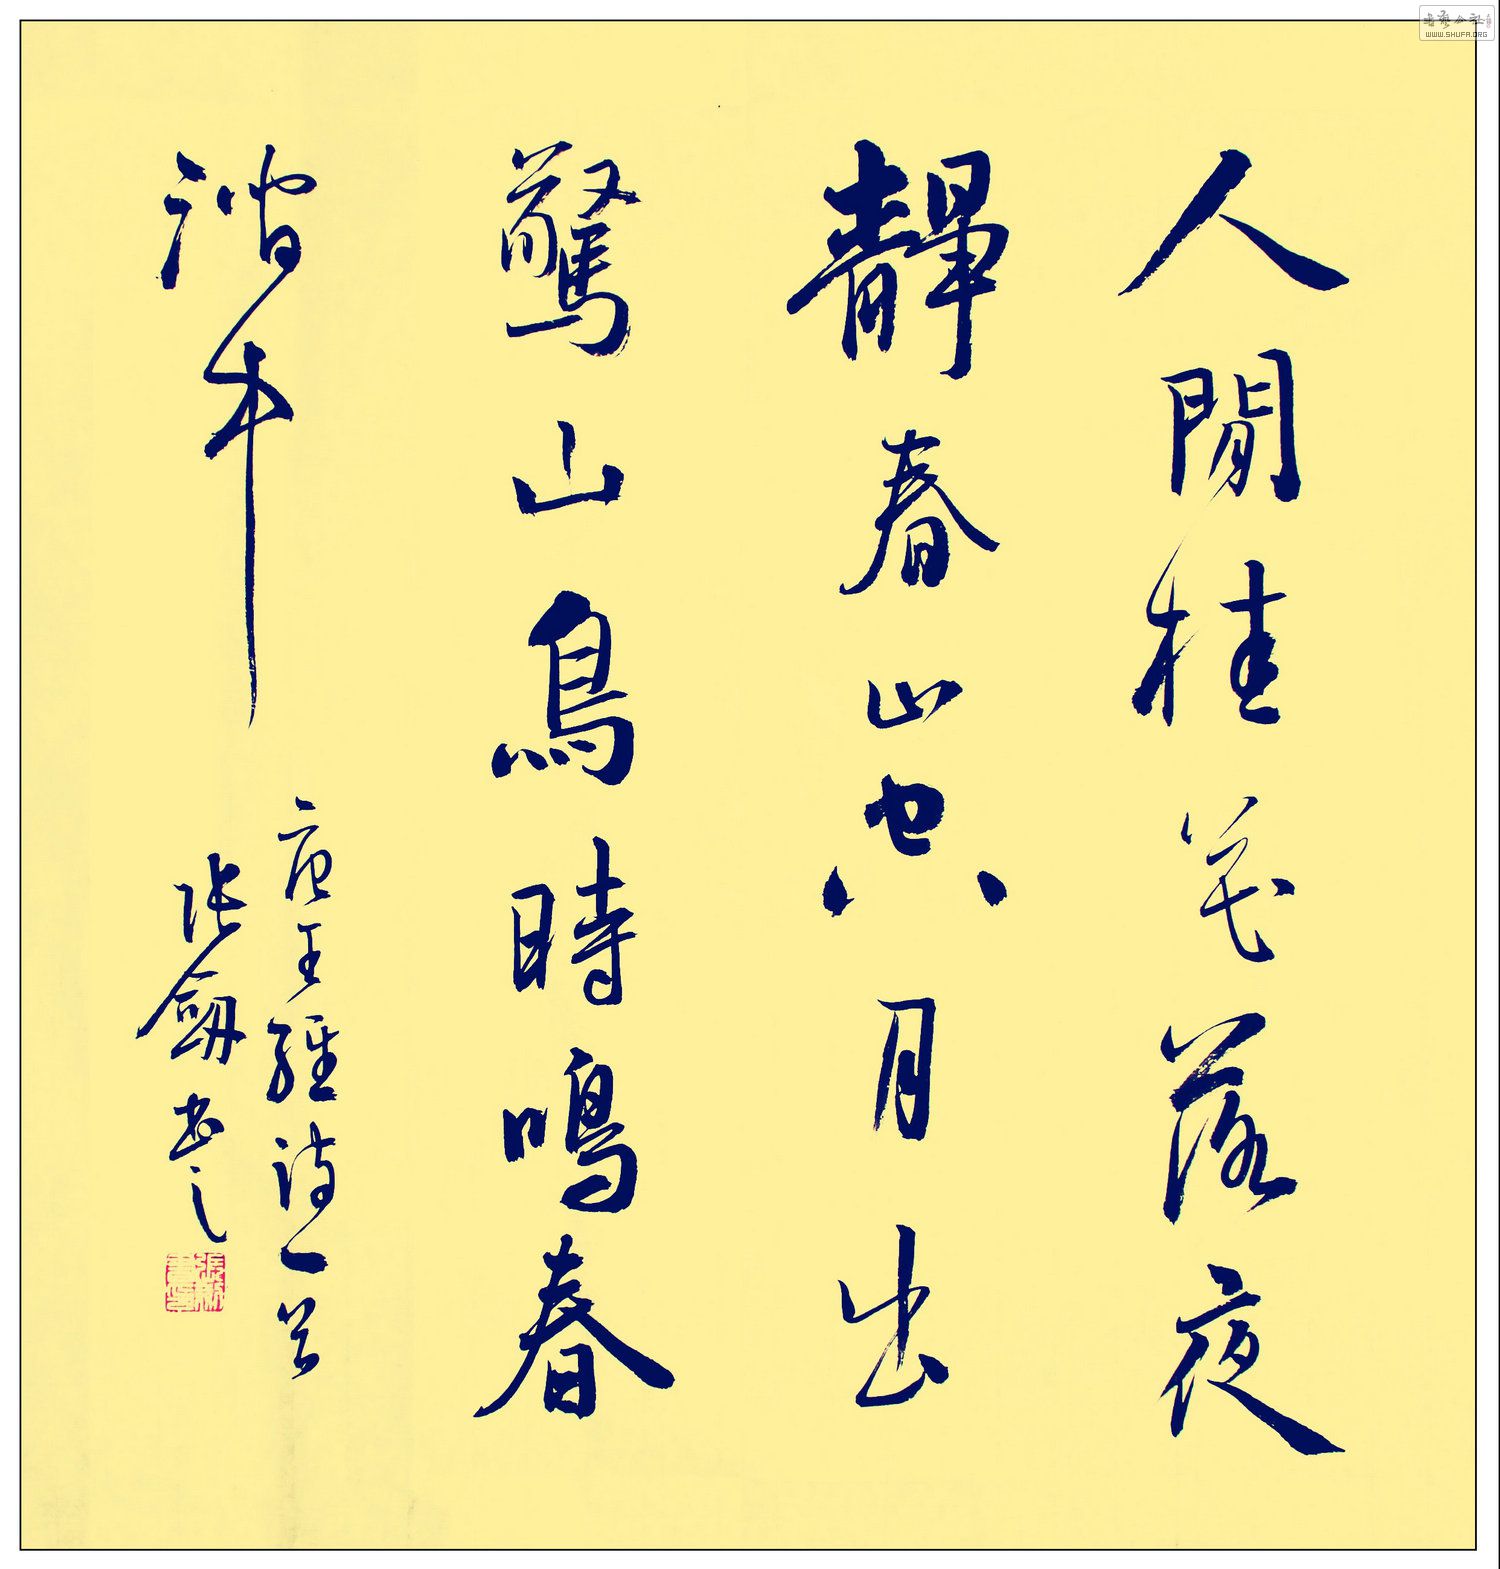 人閒桂花落夜
靜春山空月出
驚山鳥時鳴春
澗中
唐王維詩一首
張劍書之
書藝公社
WWW.SHUFA.ORG